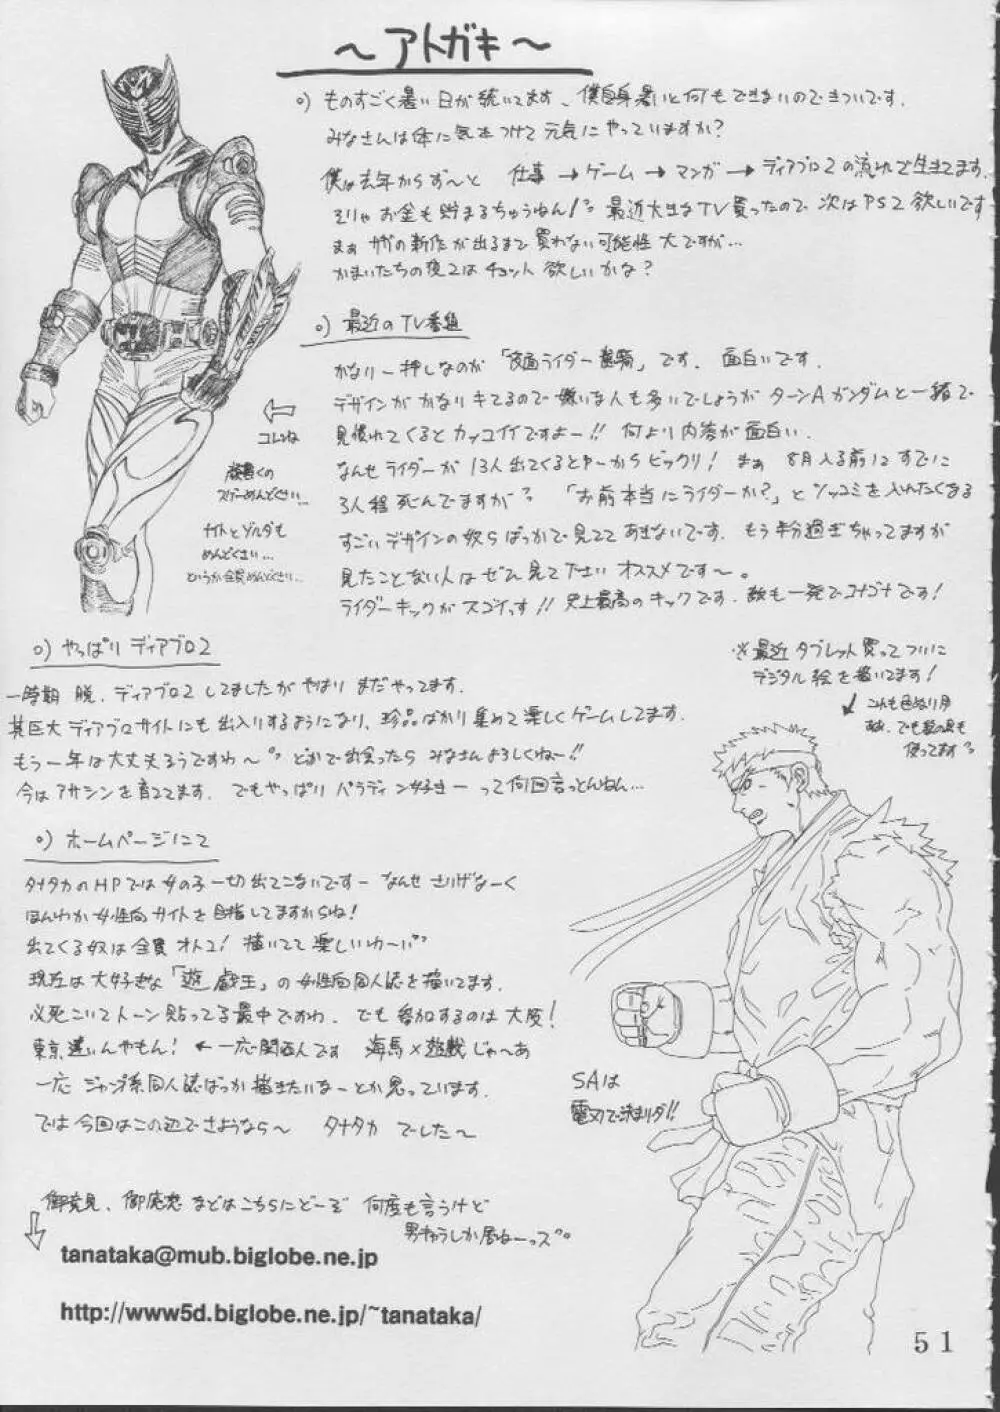 ～アトガキ～
○) ものすごく暑い日が続いてます、僕自身暑いと何もできないのできついです。
みなさんは体に気をつけて元気にやっていますか？
僕は去年からず～と 仕事→ゲーム→マンガ→ディアブロ2の流れで生きてます。
そりゃお金も貯まるちゅうねん！ 最近大きなTV買ったので次はPS2欲しいです
まぁ サガの新作が出るまで買わない可能性大ですが…
かまいたちの夜2はチョット欲しいかな？
○) 最近のTV番組
かなり一押しなのが「仮面ライダー龍騎」です。面白いです。
デザインがかなりキてるので嫌いな人も多いでしょうがターンAガンダムと一緒で
見慣れてくるとカッコイイですよー!! 何より内容が面白い。
なんせライダーが13人出てくるとゆーからビックリ！ まぁ 8月入る前にすでに
3人程死んでますが 「お前本当にライダーか？」とツッコミを入れたくなる
すごいデザインの奴らばっかで見ててあきないです。もう半分過ぎちゃってますが
見たことない人はぜひ見て下さいオススメです～。
ライダーキックがスゴイっす!! 史上最高のキックです。敵も一発でコナゴナです！
コレね
龍騎くの
スゲーめんどくさい…
ナイトとゾルダも
めんどくさい…
というか全員めんどくさい…
○) やっぱりディアブロ2
一時期 脱、ディアブロ2してましたがやはりまだやってます。
某巨大ディアブロサイトにも出入りするようになり、珍品ばかり集めて楽しくゲームしてます。
もう一年は大丈夫そうですわ～ どこかで出会ったらみなさんよろしくねー!!
今はアサシンを育ててます。でもやっぱりパラディン好きーって何回言っとんねん…
※最近タブレット買ってついに
デジタル絵を描いてます！
これも色ぬり用
使ってます
○) ホームページにて
タナタカのHPでは女の子一切出てこないですー なんせさりげなーく
ほんわか女性向サイトを目指してますからね！
出てくる奴は全員オトコ！ 描いてて楽しいわー
現在は大好きな「遊戯王」の女性向同人誌を描いてます。
必死こいてトーン貼ってる最中ですわ。でも参加するのは大阪！
東京遠いんやもん！ ←一応関西人です 海馬×遊戯じゃ～あ
一応 ジャンプ系同人誌ばっか描きたいなーとか思っています。
では今回はこの辺でさようなら～ タナタカ でした～
SAは
電刃で決まりダ!!
御意見、御感想などはこちらにどーぞ 何度も言うけど
男キャラしか居ねーっス
tanataka@mub.biglobe.ne.jp
http://www5d.biglobe.ne.jp/~tanataka/
51